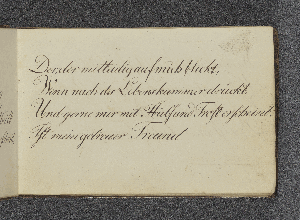 Der, der mitleidig auf mich blickt,
Wenn mich des Lebenskummer drückt
Und gerne mir mit Hülf und Trost erscheint,
Ist mein getreuer Freund